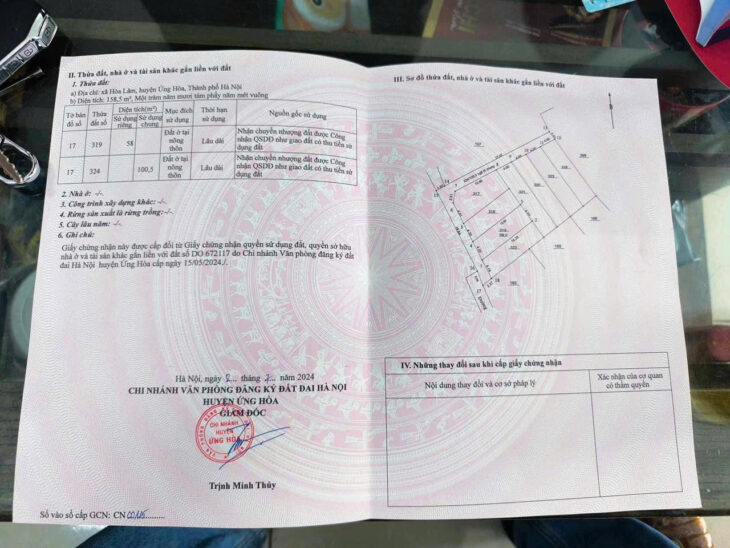 II. Thửa đất, nhà ở và tài sản khác gắn liền với đất
1. Thửa đất:
a) Địa chỉ: xã Hòa Lâm, huyện Ứng Hòa, Thành phố Hà Nội
b) Diện tích: 158,5 m², Một trăm năm mươi tám phẩy năm mét vuông
Tờ bản đồ số
Thửa đất số
Diện tích(m²)
Sử dụng riêng
Sử dụng chung
Mục đích sử dụng
Thời hạn sử dụng
Nguồn gốc sử dụng
17 319 58 Đất ở tại nông thôn Lâu dài Nhận chuyển nhượng đất được Công nhận QSDĐ như giao đất có thu tiền sử dụng đất
17 324 100,5 Đất ở tại nông thôn Lâu dài Nhận chuyển nhượng đất được Công nhận QSDĐ như giao đất có thu tiền sử dụng đất
2. Nhà ở: -/-
3. Công trình xây dựng khác: -/-
4. Rừng sản xuất là rừng trồng:-/-
5. Cây lâu năm: -/-
6. Ghi chú:
Giấy chứng nhận này được cấp đổi từ Giấy chứng nhận quyền sử dụng đất, quyền sở hữu
nhà ở và tài sản khác gắn liền với đất số DO 672117 do Chi nhánh Văn phòng đăng ký đất
đai Hà Nội huyện Ứng Hòa cấp ngày 15/05/2024./.
Hà Nội, ngày ... tháng ... năm 2024
CHI NHÁNH VĂN PHÒNG ĐĂNG KÝ ĐẤT ĐAI HÀ NỘI
HUYỆN ỨNG HÒA
GIÁM ĐỐC
CHI NHÁNH
HUYỆN
ỨNG HÒA
Trịnh Minh Thủy
Số vào sổ cấp GCN: CN
III. Sơ đồ thửa đất, nhà ở và tài sản khác gắn liền với đất
IV. Những thay đổi sau khi cấp giấy chứng nhận
Nội dung thay đổi và cơ sở pháp lý
Xác nhận của cơ quan
có thẩm quyền